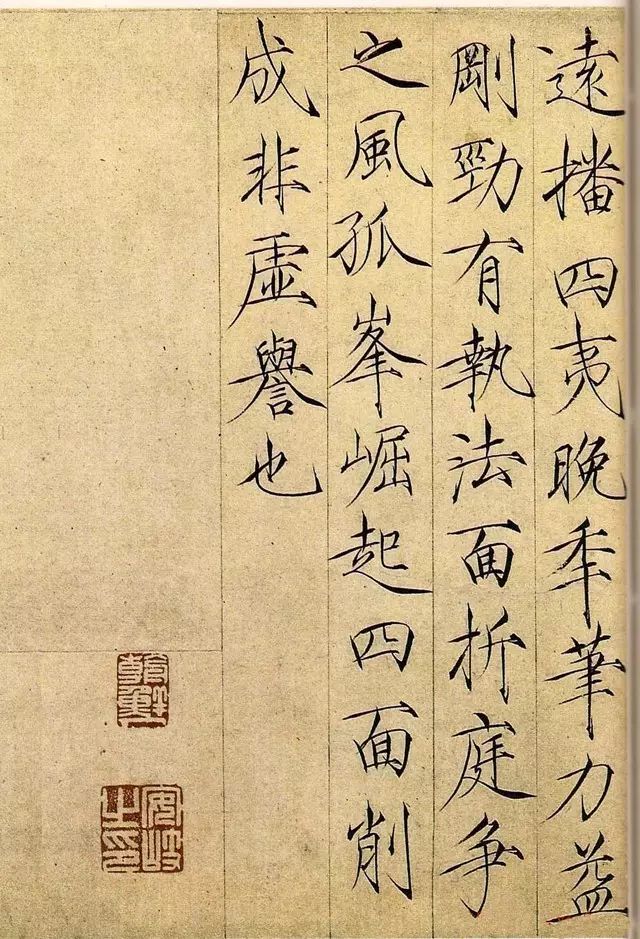 遠播四夷晚年筆力益
剛勁有執法面折庭爭
之風孤峯崛起四面削
成非虛譽也
朝鮮
安岐之印